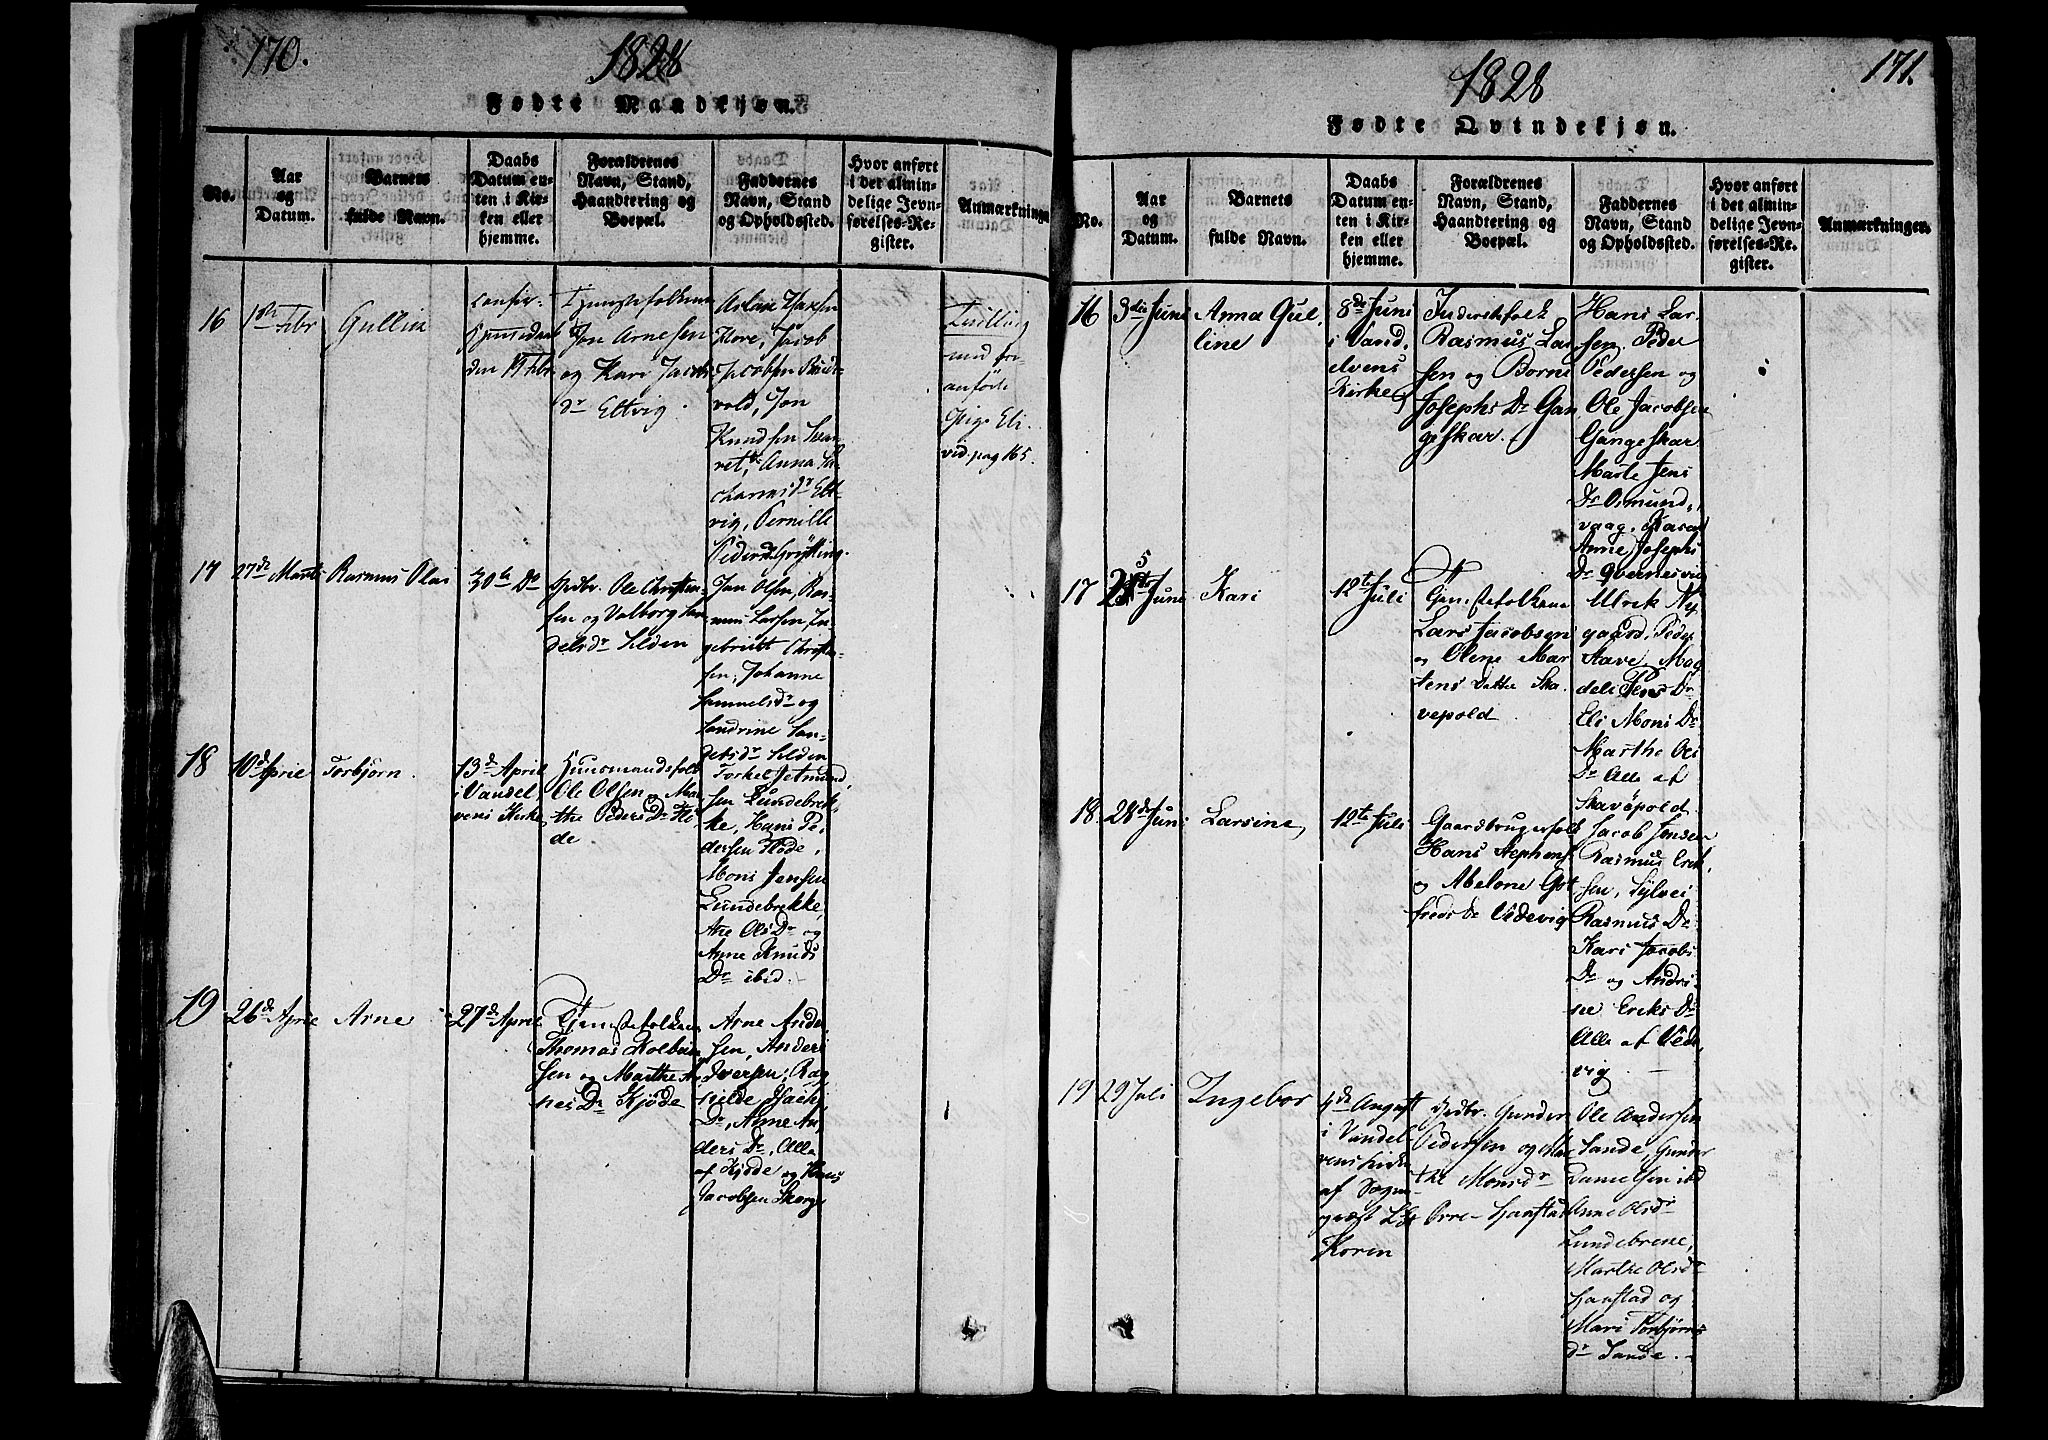 170.
1828
Fødte Mandkjøn.
No.
Aar
og
Datum.
Barnets
fulde Navn.
Daabs
Datum en-
ten i Kir-
ken eller
hjemme.
Forældrenes
Navn, Stand,
Haandtering og
Boepæl.
Faddernes
Navn, Stand
og Opholdssted.
Hvor anført
i det almin-
delige Jevn-
førelses-Re-
gister.
Anmærkninger
16
Febr
Confir-
den 19 Febr
Jon Arnesen
og Kari Jacobs
dr Eltvig.
Jacob
Jacobsen
vold, Jon
Knudsen
Anna
vig, Pernille
Tvilling
Pige Eli.
vid. pag 165.
17
27de Marts
Rasmus Olai
30te Do
Ole Christen-
sen og Valborg
delsdr Selden
Jan Olsen, Ras-
mus Larsen In-
gebrict Christen-
sen, Johanne
Samuelsdr og
Sandrine
Selden
18
10de Aprie
Torbjørn.
13de April
i Vandel
vens Kirke
Huusmandsfolk
Ole Olsen og Mar
the Peders Dr Flo
de
Torkel Asmund
sen Lundebrek-
ke, Hans Pe-
dersen Flode,
Mons Jensen
Lundebrekke,
Ane Ols Dr og
Anne Knuds
Dr ibid.
19
26de Aprie
Arne
27de April
Tjenestefolkene
Thomas Kolbein
sen og Marthe Ar
nes Dr Kjøde
Arne Ander
sen, Anders
Iversen, Rag
nilde Isach
Dr, Anne An,
ders Dr, Alle
af Kjøde og Hans
Jacobsen Skorge
171.
1828
Fødte Qvindekjøn.
No.
Aar
og
Datum.
Barnets
fulde Navn.
Daabs
Datum en-
ten i Kir-
ken eller
hjemme.
Forældrenes
Navn, Stand,
Haandtering og
Boepæl.
Faddernes
Navn, Stand
og Opholdssted.
Hvor anført
i det almin-
delige Jevn-
førelses-Re-
gister.
Anmærkninger.
16
3die Juni
Anna Gul,
line
8de Juni
i Vand,
elvens
Kirke
Inderstfolk
Rasmus Lar
sen og Borne
Josephs Dr Gan
geskar.
Hans Lar-
sen, Peder
Pedersen og
Ole Jacobsen
Gangeskar
Marte Jens
Dr Osmund,
vaag,
Anne Josephs
Dr Qvernesvig
17
5te Juni
Kari
12te Juli
Tjenestefolkene
Lars Jacobsen
og Olene Mar
tens Datter Ska-
vepold
Ulrik Ny,
gaard, Peder
Aave, Mag
deli Jens Dr
Eli Mons Dr
Marthe Ols
Dr Alle af
Skavöpold
18.
28de Juni
Larsine
12te Juli
Gaardbrugerfolk
Hans Stephens
og Abelone Got
freds Dr Vedevig
Jacob Jensen
Rasmus Erik
sen, Sylvei
Rasmus Dr
Kari Jacobs
Dr og Andri-
ne Eriks Dr
Alle af Vede,
vig
19
29 Juli
Ingebor
4de August
i Vandel-
vens Kirke
af Sogne-
præst
Koren
Gunder
Pedersen og Mar
the Monsdr
Ole Andersen
Sande, Gunder
Danielsen ibd
Anne Olsdr
Lundebrene,
Marthe Olsdr
og
Mari Torbjørns
dr Sande.